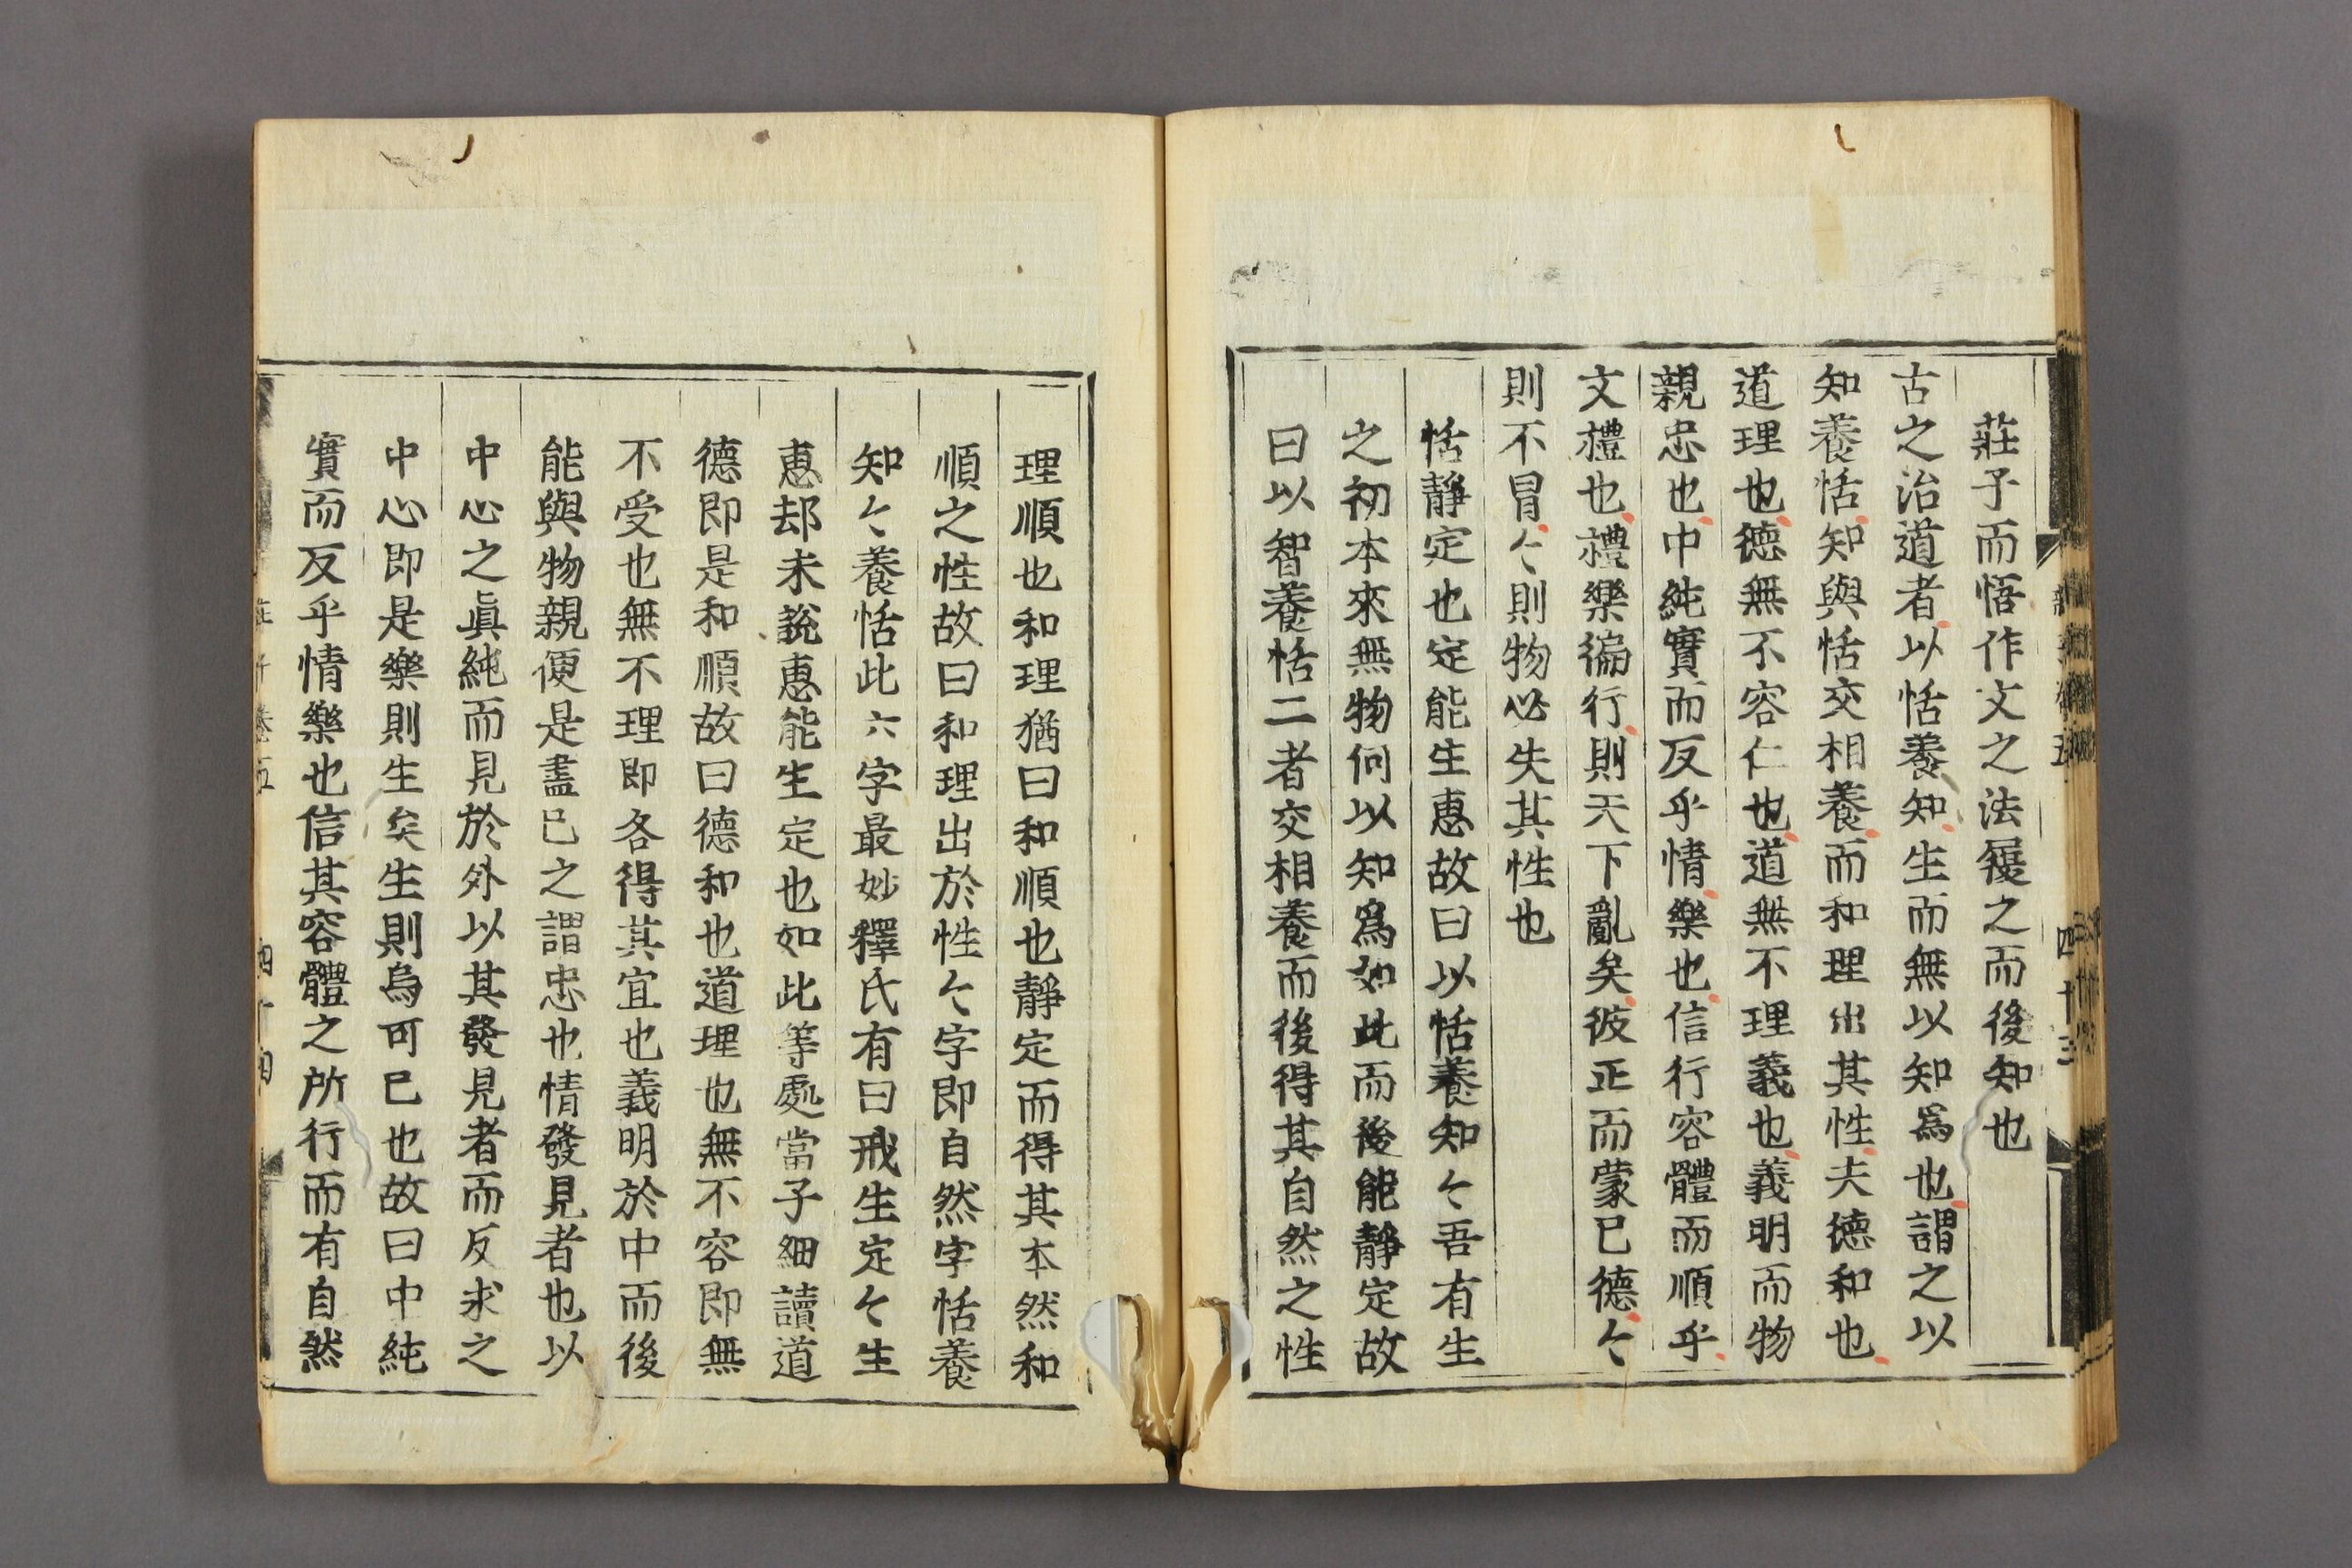 莊子而悟作文之法𮗚之而後知也
古之治道者以恬養知生而無以知爲也謂之以
知養恬知與恬交相養而和理出其性夫德和也
道理也德無不容仁也道無不理義也義明而物
親忠也中純實而反乎情樂也信行容體而順乎
文禮也禮樂徧行則天下亂矣彼正而蒙已德〻
則不冒〻則物必失其性也
恬靜定也定能生惠故曰以恬養知〻吾有生
之初本來無物何以知爲如此而後能靜定故
曰以智養恬二者交相養而後得其自然之性
理順也和理猶曰和順也靜定而得其本然和
順之性故曰和理出於性〻字即自然字恬養
知〻養恬此六字最妙釋氏有曰戒生定〻生
惠却未說惠能生定也如此等處當子細讀道
德即是和順故曰德和也道理也無不容即無
不受也無不理即各得其宜也義明於中而後
能與物親便是盡已之謂忠也情發見者也以
中心之眞純而見於外以其發見者而反求之
中心即是樂則生矣生則烏可已也故曰中純
實而反乎情樂也信其容體之所行而有自然
莊子卷五
四十四